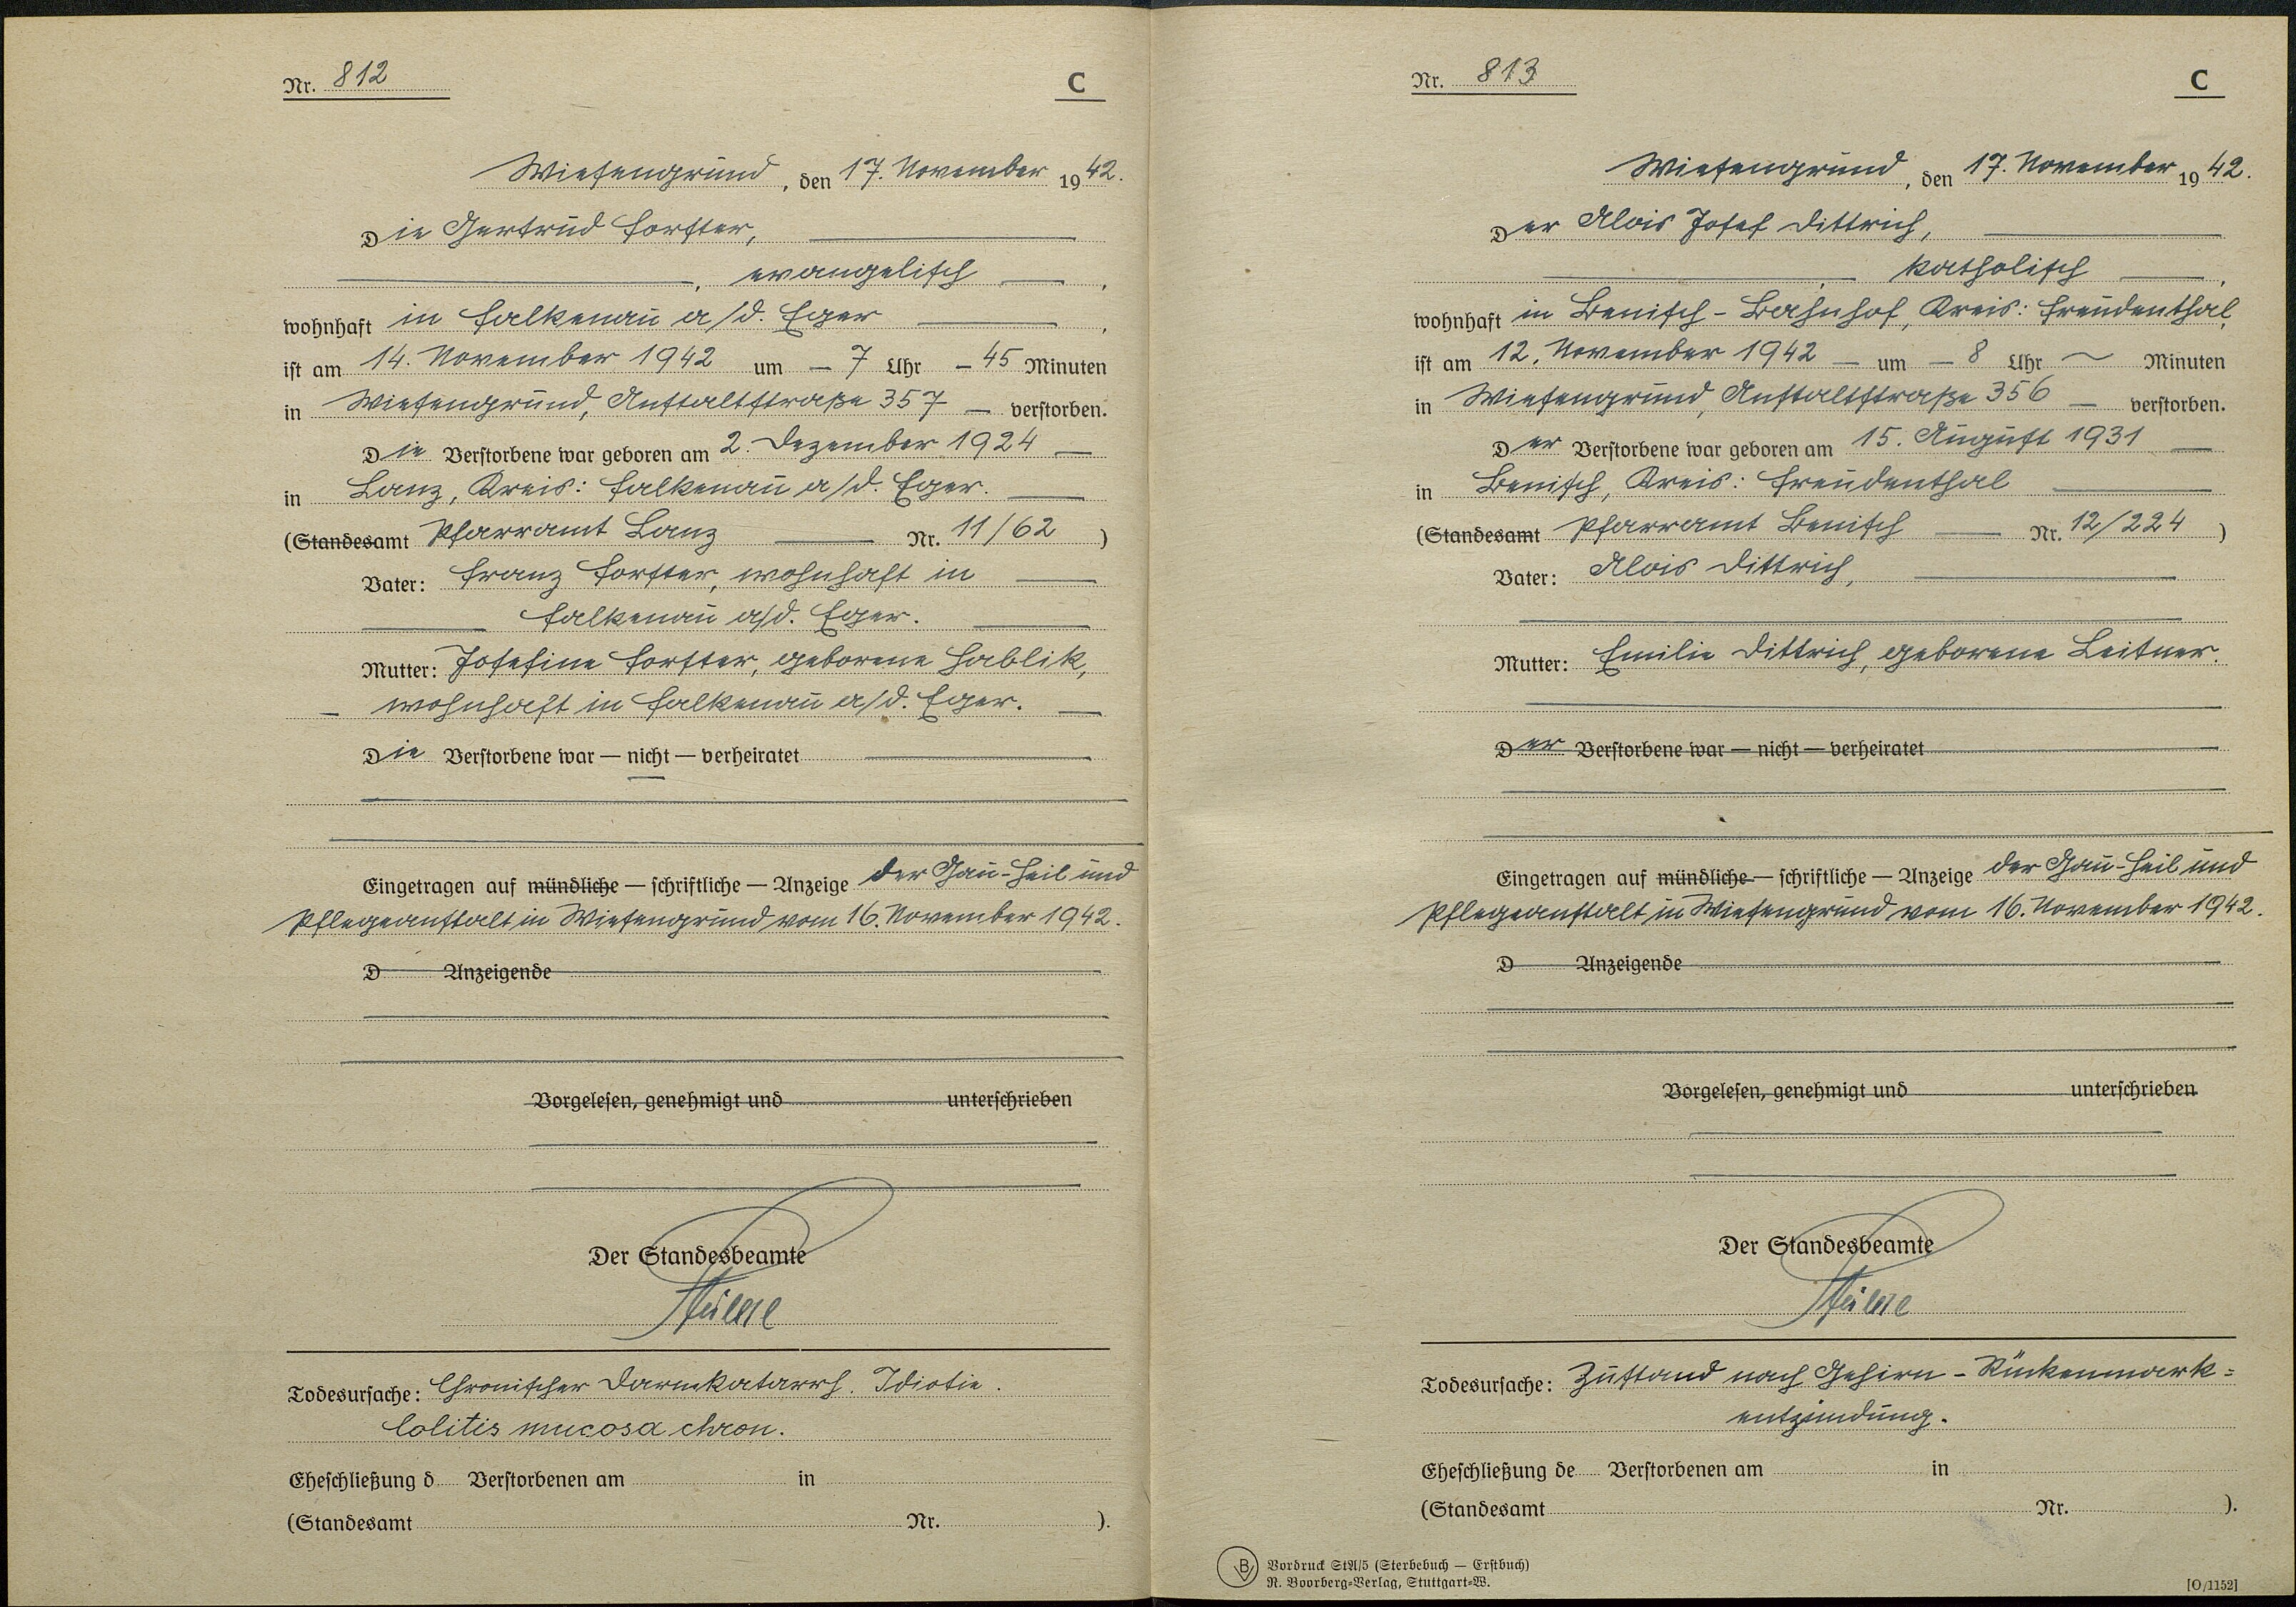 Nr. 812
C
Wiesengrund, den 17. November 1942.
Die Gertrud Forster,
, evangelisch ,
wohnhaft in Falkenau a/d. Eger ,
ist am 14. November 1942 um – 7 Uhr – 45 Minuten
in Wiesengrund, Anstaltstraße 357 – verstorben.
Die Verstorbene war geboren am 2. Dezember 1924 –
in Lanz, Kreis: Falkenau a/d. Eger.
(Standesamt Pfarramt Lanz Nr. 11/62 )
Vater: Franz Forster, wohnhaft in
Falkenau a/d. Eger.
Mutter: Josefine Forster, geborene Hablik,
– wohnhaft in Falkenau a/d. Eger. –
Die Verstorbene war — nicht — verheiratet
Eingetragen auf mündliche — schriftliche — Anzeige der Gau-Heil und
Pflegeanstalt in Wiesengrund vom 16. November 1942.
D Anzeigende
Vorgelesen, genehmigt und unterschrieben
Der Standesbeamte
Todesursache: Chronischer Darmkatarrh. Idiotie.
Colitis mucosa chron.
Eheschließung d Verstorbenen am in
(Standesamt Nr. ).
Nr. 813
C
Wiesengrund, den 17. November 1942.
Der Alois Josef Dittrich,
, katholisch ,
wohnhaft in Benisch - Bahnhof, Kreis: Freudenthal,
ist am 12. November 1942 – um – 8 Uhr ~ Minuten
in Wiesengrund, Anstaltstraße 356 – verstorben.
Der Verstorbene war geboren am 15. August 1931 –
in Benisch, Kreis: Freudenthal
(Standesamt Pfarramt Benisch Nr. 12/224 )
Vater: Alois Dittrich,
Mutter: Emilie Dittrich, geborene Leitner.
Der Verstorbene war — nicht — verheiratet
Eingetragen auf mündliche — schriftliche — Anzeige der Gau-Heil und
Pflegeanstalt in Wiesengrund vom 16. November 1942.
D Anzeigende
Vorgelesen, genehmigt und unterschrieben
Der Standesbeamte
Todesursache: Zustand nach Gehirn - Rückenmark=
entzündung.
Eheschließung de Verstorbenen am in
(Standesamt Nr. ).
B Vordruck StA/5 (Sterbebuch — Erstbuch)
R. Boorberg-Verlag, Stuttgart-W.
[O/1152]